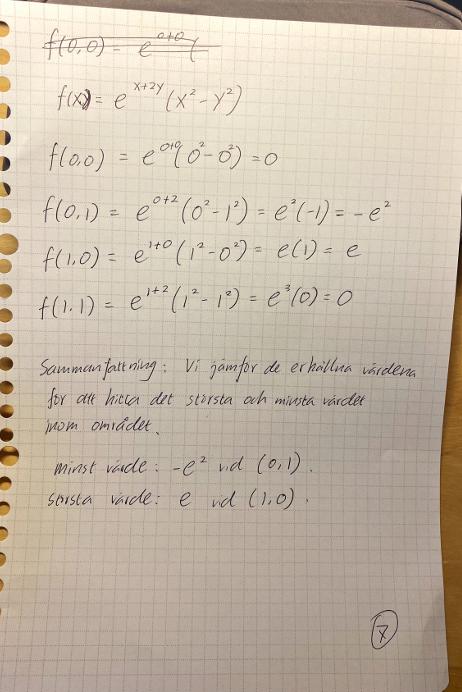 f(0,0) = e^{0+0} (
f(x) = e^{x+2y} (x² - y²)
f(0,0) = e^{0+0} (0² - 0²) = 0
f(0,1) = e^{0+2} (0² - 1²) = e²(-1) = -e²
f(1,0) = e^{1+0} (1² - 0²) = e(1) = e
f(1,1) = e^{1+2} (1² - 1²) = e³(0) = 0
Sammanfattning: Vi jämför de erhållna värdena
för att hitta det största och minsta värdet
inom området.
minst värde: -e² vid (0,1).
största värde: e vid (1,0).
7